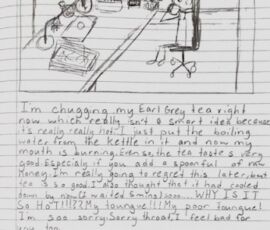 I'm chugging my Earl Grey tea right
now which really isn't a smart idea because
its really really hot. I just put the boiling
water from the kettle in it and now my
mouth is burning. Even so, the tea taste s very
good. Especially if you add a spoonful of raw
Honey. I'm really going to regret this later, but
tea is so good. I also thought that it had cooled
down by now (I waited 5 mins)oooo... WHY IS IT
So HoT!!?? My toungue!!! My poor toungue!
I'm soo sorry. Sorry throat, I feel bad for
you too.